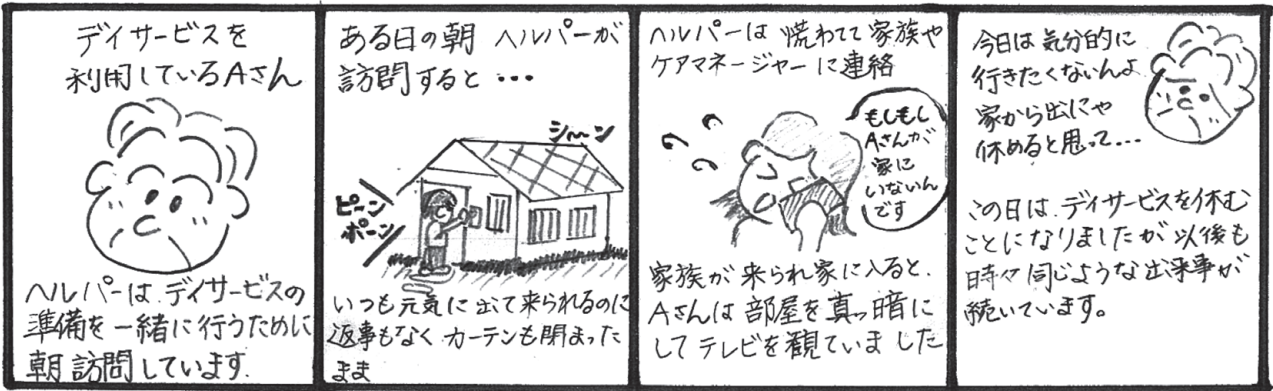 デイサービスを
利用しているAさん
ヘルパーは、デイサービスの
準備を一緒に行うために
朝訪問しています。
ある日の朝 ヘルパーが
訪問すると・・・
シーン
ピーン
ポーン
いつも元気に出て来られるのに
返事もなく カーテンも閉まった
まま
ヘルパーは 慌わてて家族や
ケアマネージャーに連絡
もしもし
Aさんが
家に
いないん
です
家族が来られ家に入ると、
Aさんは部屋を真っ暗に
してテレビを観ていました
今日は気分的に
行きたくないんよ
家から出にゃ
休めると思って・・・
この日は、デイサービスを休む
ことになりましたが以後も
時々同じような出来事が
続いています。